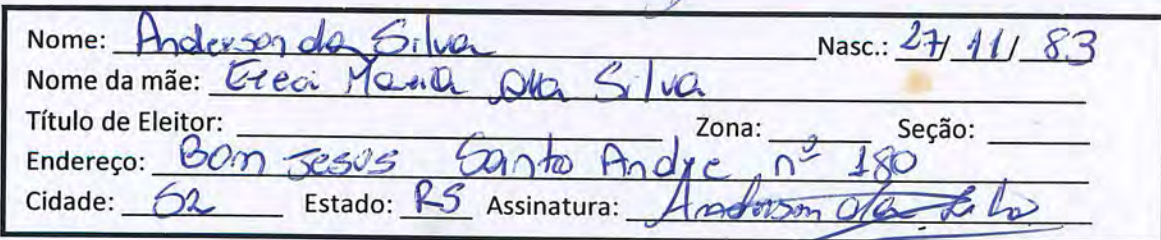 Nome: Anderson da Silva Nasc.: 27/11/83
Nome da mãe: Maria da Silva
Título de Eleitor: Zona: Seção:
Endereço: Bom Jesus Santo Andre nº 180
Cidade: Estado: RS Assinatura: Anderson da Silva